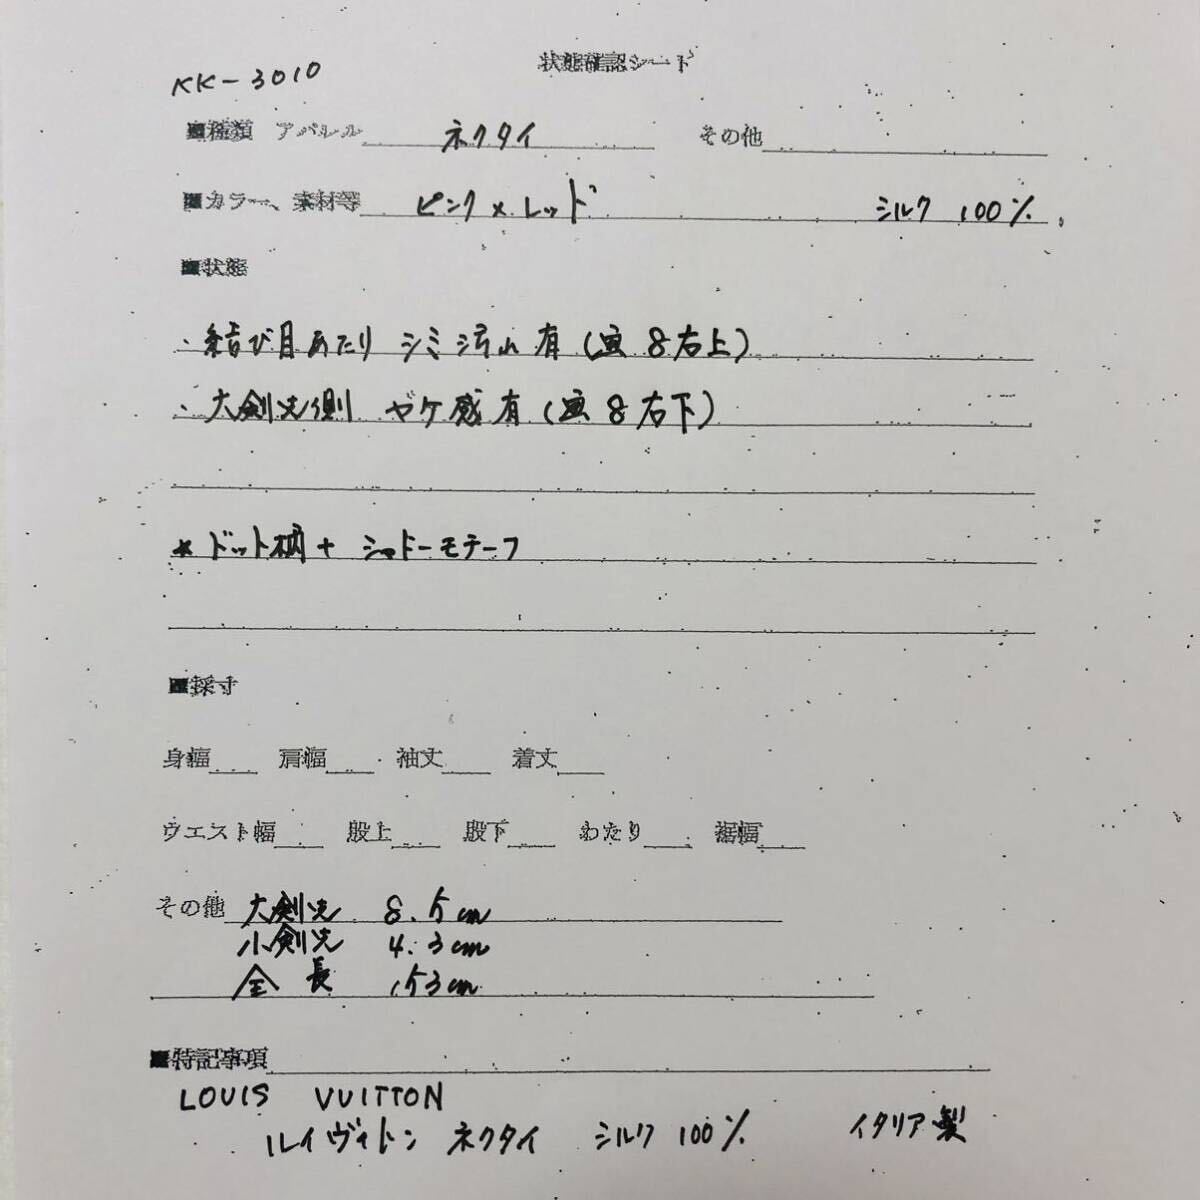 状態確認シート
KK-3010
■種類 アパレル ネクタイ その他
■カラー、素材等 ピンク×レッド シルク 100%
■状態
・結び目あたり シミ汚れ有(画8右上)
・大剣先側 ヤケ感有(画8右下)
*ドット柄+シャドーモチーフ
■採寸
身幅 肩幅 袖丈 着丈
ウエスト幅 股上 股下 わたり 裾幅
その他 大剣先 8.5cm
小剣先 4.3cm
全長 153cm
■特記事項
LOUIS VUITTON
ルイヴィトン ネクタイ シルク 100% イタリア製